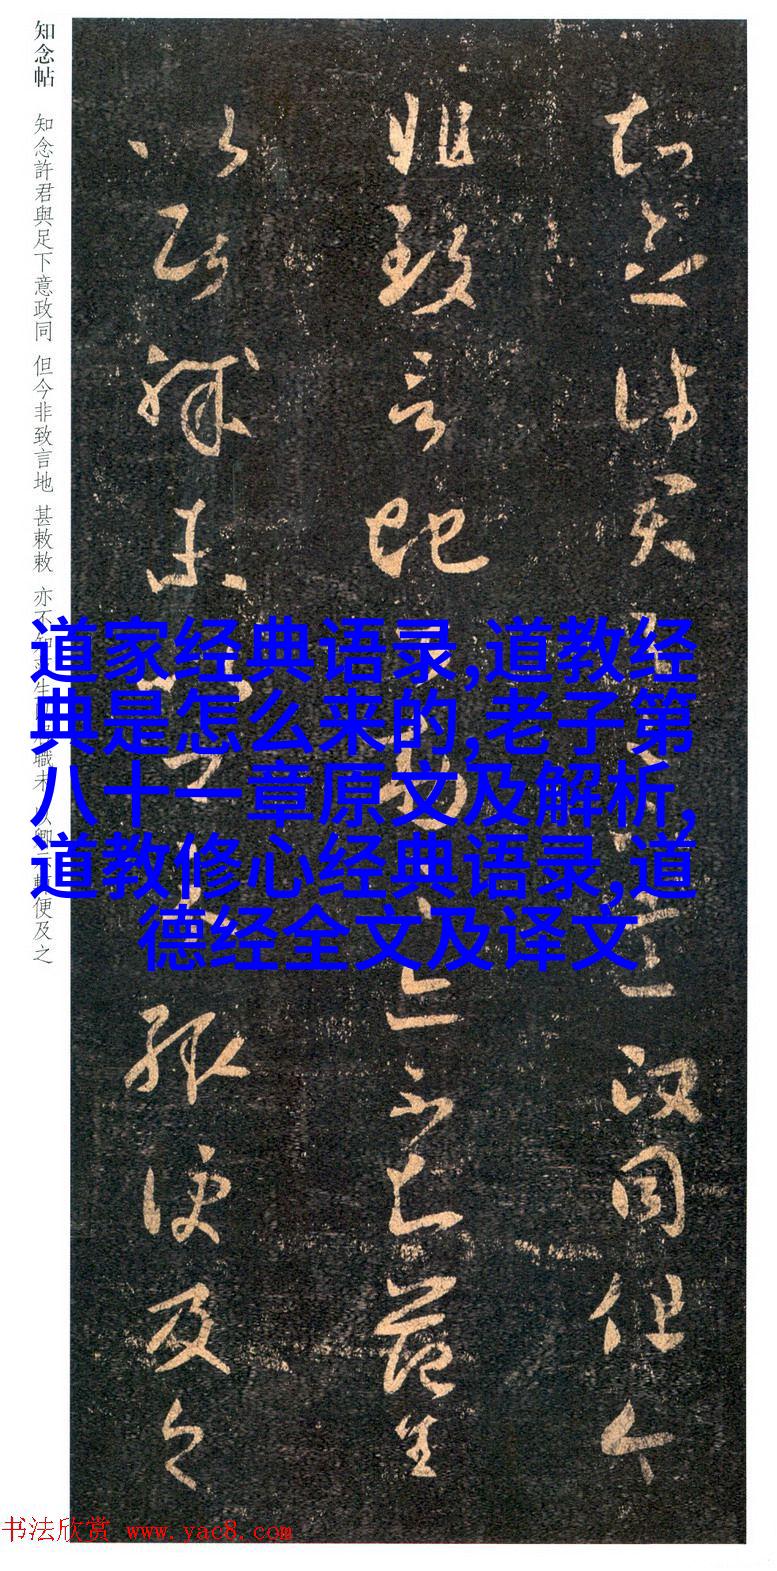 知念帖
知念許君與足下意政同 但今非致言地 甚敕敕 亦不知
便及之
知念許君
同但今
非致言地
亦不知范生
以居職未
卿
便及之
道家经典语录,道教经
典是怎么来的,老子第
八十一章原文及解析,
道教修心经典语录,道
德经全文及译文
书法欣赏 www.yac8.com